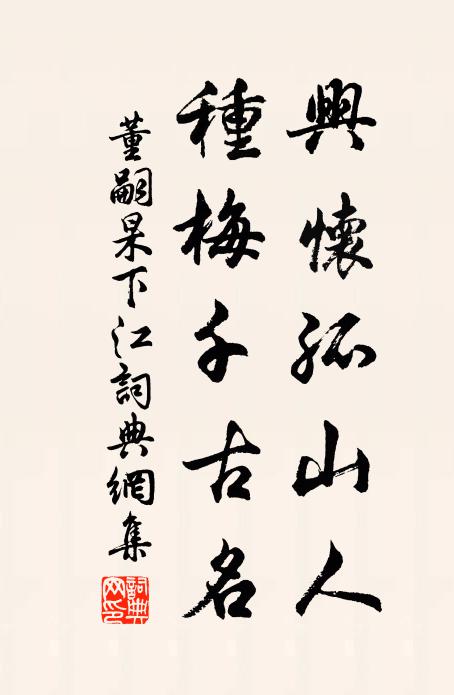 興懷孤山人
種梅千古名
董嗣杲下江詞典網集
詞典网印